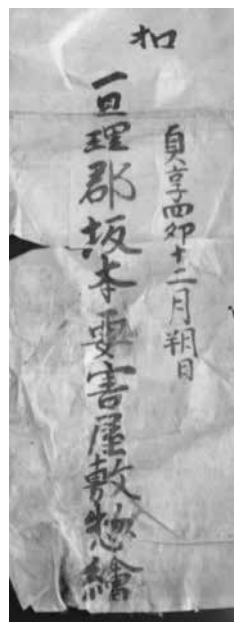 扣
貞享四卯十二月朔日
一亘理郡坂本要害屋敷惣繪